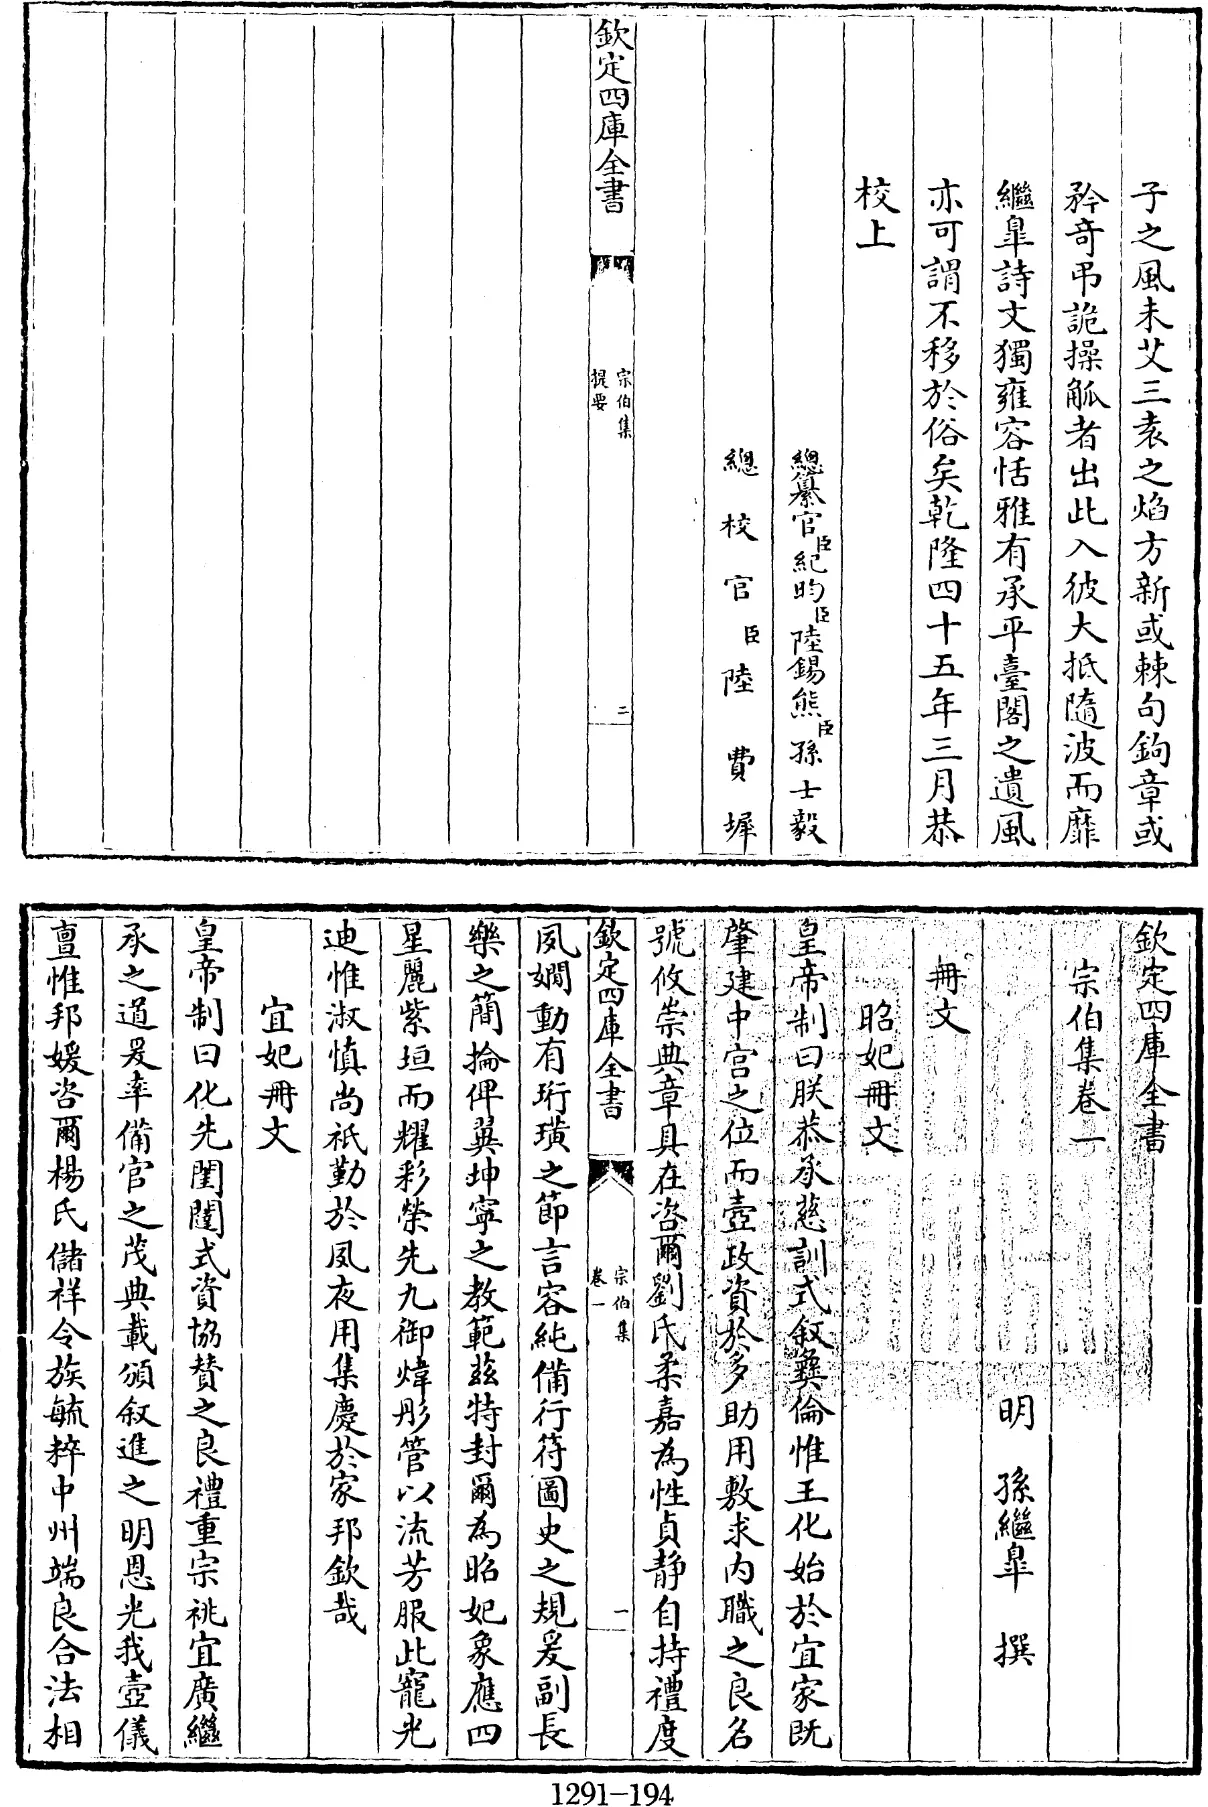 子之風未艾三袁之焰方新或棘句鉤章或
矜奇弔詭操觚者出此入彼大抵隨波而靡
繼臯詩文獨雍容恬雅有承平臺閣之遺風
亦可謂不移於俗矣乾隆四十五年三月恭
校上
總纂官臣紀昀臣陸錫熊臣孫士毅
總校官臣陸費墀
欽定四庫全書
宗伯集
提要
二
欽定四庫全書
宗伯集卷一
明 孫繼臯 撰
冊文
昭妃冊文
皇帝制曰朕恭承慈訓式敘彞倫惟王化始於宜家既
肇建中宮之位而壼政資於多助用敷求內職之良名
號攸崇典章具在咨爾劉氏柔嘉為性貞靜自持禮度
欽定四庫全書
宗伯集
卷一
一
夙嫺動有珩璜之節言容純備行符圖史之規爰副長
樂之簡掄俾翼坤寧之教範茲特封爾為昭妃象應四
星麗紫垣而耀彩榮先九御煒彤管以流芳服此寵光
迪惟淑慎尚祇勤於夙夜用集慶於家邦欽哉
宜妃冊文
皇帝制曰化先閨闥式資協贊之良禮重宗祧宜廣繼
承之道爰率備官之茂典載頒敘進之明恩光我壼儀
亶惟邦媛咨爾楊氏儲祥令族毓粹中州端良合法相
1291-194